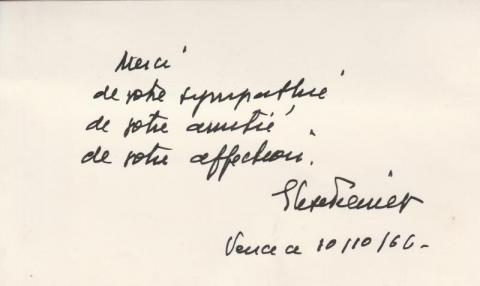 Merci
de votre sympathie
de votre amitié
de votre affection.
Vence 10/10/66-